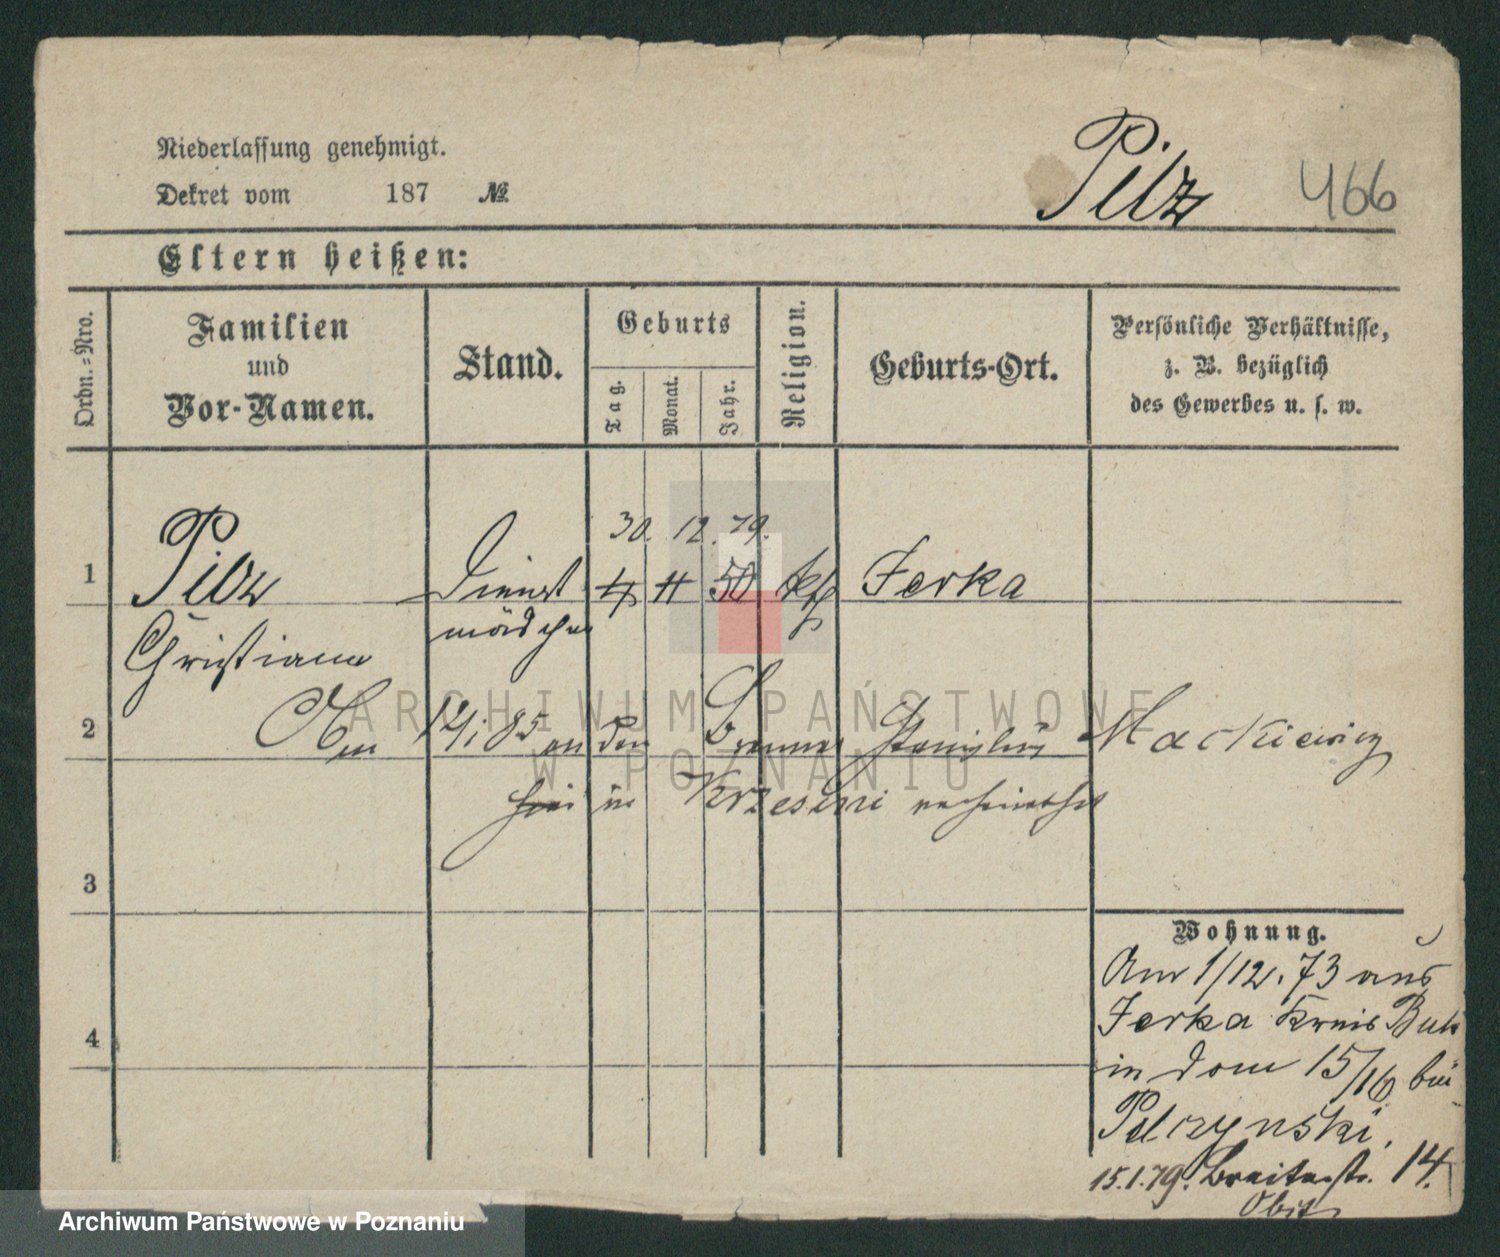 Niederlassung genehmigt.
Dekret vom 187 №
Pilz 466
Eltern heißen:
Ordn.-Nro.
Familien
und
Vor-Namen.
Stand.
Geburts
Tag.
Monat.
Jahr.
Religion.
Geburts-Ort.
Persönliche Verhältnisse,
z. B. bezüglich
des Gewerbes u. s. w.
30. 12. 79.
1 Pilz Dienst 4 11 50 kth Jerka
Christiane mädchen
2 Am 12/1 85 an den Stanislaus Mackiewicz
in verheirathet
3
4
Wohnung.
Am 1/12. 73 aus
Jerka Kreis Buk
in dom 15/16 bei
Pelczynski.
15.1.79. Breitestr. 14.
ARCHIWUM PAŃSTWOWE
W POZNANIU
Archiwum Państwowe w Poznaniu